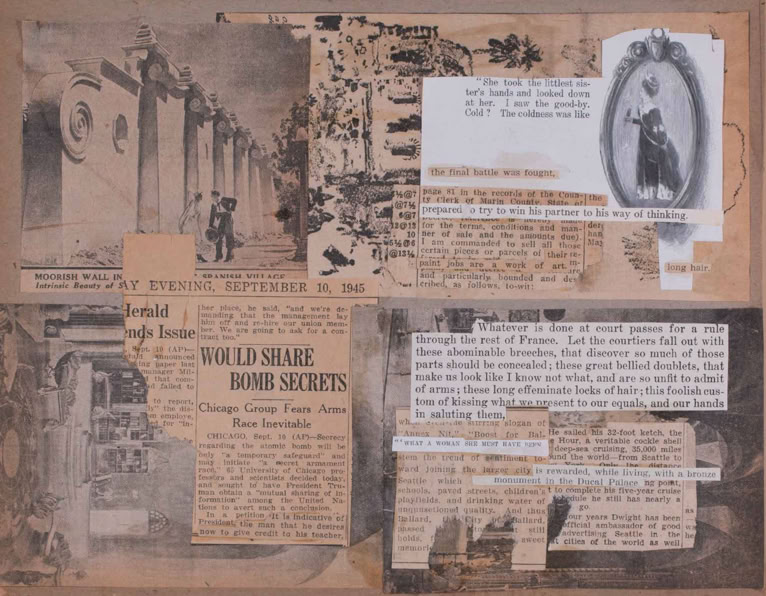 "She took the littlest sis-
ter's hands and looked down
at her. I saw the good-by.
Cold? The coldness was like
the final battle was fought,
page 81 in the records of the Coun-
ty Clerk of Marin County, State of
prepared to try to win his partner to his way of thinking.
for the terms, conditions and man-
ner of sale and the amounts due).
I am commanded to sell all those
certain pieces or parcels of their
paint jobs are a work of art.
and particularly bounded and des
cribed, as follows, to-wit:
long hair.
MOORISH WALL IN SPANISH VILLAGE
Intrinsic Beauty of S
AY EVENING, SEPTEMBER 10, 1945
Herald
nds Issue
Sept. 10 (AP)—
her place, he said, "and we're de-
manding that the management lay
him off and re-hire our union mem-
ber. We are going to ask for a con-
tract too."
WOULD SHARE
BOMB SECRETS
Chicago Group Fears Arms
Race Inevitable
CHICAGO, Sept. 10 (AP)—Secrecy
regarding the atomic bomb will be
only "a temporary safeguard" and
may initiate "a secret armament
race," 50 University of Chicago pro-
fessors and scientists decided today,
and sought to have President Tru-
man obtain a "mutual sharing of in-
formation" among the United Na-
tions to avert such a conclusion.
In a petition It is indicative of
President, the man that he desires
now to give credit to his teacher.
Whatever is done at court passes for a rule
through the rest of France. Let the courtiers fall out with
these abominable breeches, that discover so much of those
parts should be concealed; these great bellied doublets, that
make us look like I know not what, and are so unfit to admit
of arms; these long effeminate locks of hair; this foolish cus-
tom of kissing what we present to our equals, and our hands
in saluting them,
slogan of
"Annex Nit," "Boost for Bal-
"WHAT A WOMAN SHE MUST HAVE BEEN
them the trend of sentiment to-
ward joining the larger city
Seattle which
schools, paved streets, children's
playfields, and drinking water of
unquestioned quality. And thus
Ballard, "City of Ballard,
passed still
holds, sweet
memori
He sailed his 32-foot ketch, the
Hour, a veritable cockle shell
deep-sea cruising, 35,000 miles
ound the world—from Seattle to
is rewarded, while living, with a bronze
monument in the Ducal Palace
ng point,
to complete his five-year cruise
hedule he still has nearly a
go.
our years Dwight has been
official ambassador of good
advertising Seattle in the
t cities of the world as well